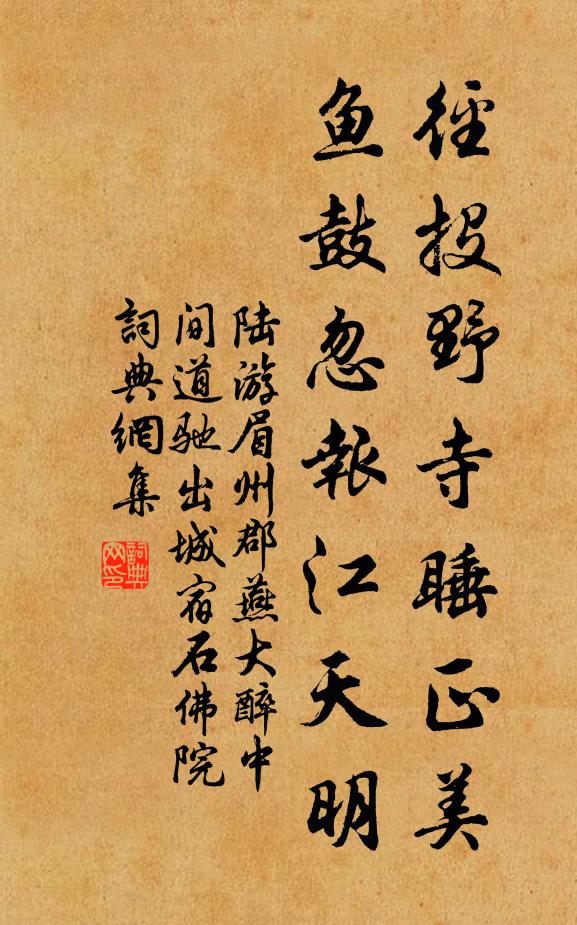 徑投野寺睡正美
鱼鼓忽報江天明
陆游眉州郡燕大醉中
间道馳出城宿石佛院
詞典網集
詞典
网印